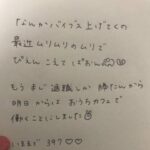 「なんかバイブス上げてくの
最近ムリムリのムリで
ぴえん こえて ぱおん
もう まじ 退職しか 勝たんから
明日 からは おうちカフェで
働くことにしました
いままで 397♡♡